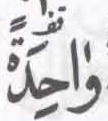 وَاحِدَةً ۚقف